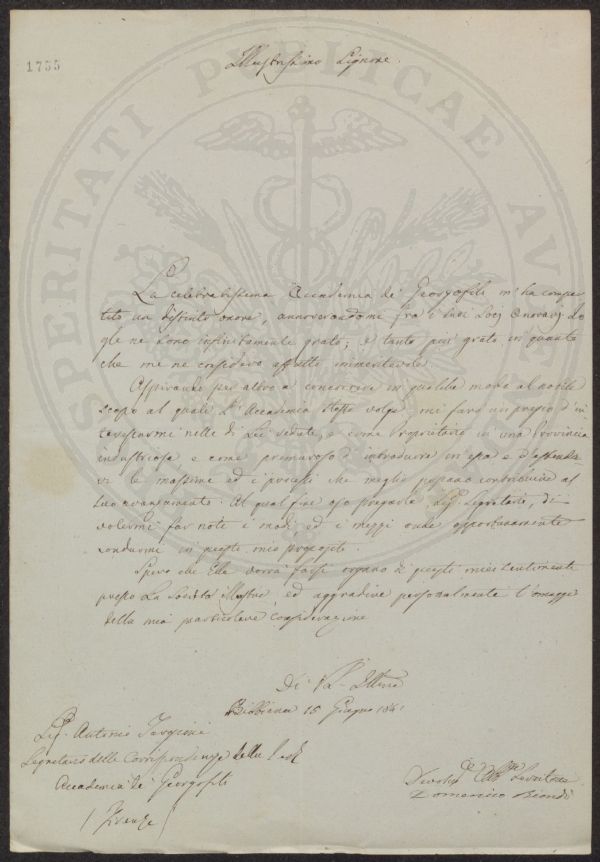 1755
Illustrissimo Signore.
La celebratissima Accademia de' Georgofili m'ha compar-
tito un distinto onore, annoverandomi fra i suoi Socj Onorarj. Io
gle ne sono infinitamente grato; e tanto più grato in quanto
che me ne considero affatto immeritevole.
Aspirando per altro a concorrere in qualche modo al nobile
scopo al quale l'Accademia stessa volge, mi farò un pregio d'in-
nelle di Lei sedute, e come Proprietario in una Provincia
industriosa e come premuroso d'introdurre in essa e d'estender-
vi le massime ed i processi che meglio possano contribuire al
suo avanzamento. Al qual fine oso pregarla Sig. Segretario, di
volermi far note i modi, ed i mezzi onde opportunamente
condurmi in questo mio proposito.
Spero che Ella vorrà farsi organo di questi miei sentimenti
presso La Società Illustre ed aggradire personalmente l'omaggio
della mia particolare considerazione
Di V. S. Illma
Bibbiena 15 Giugno
Sig. Antonio Targioni
Segretario delle Corrispondenze della
Accademia de' Georgofili
Firenze
Servitore
Domenico Biondi
SPERITATI PUBLICAE